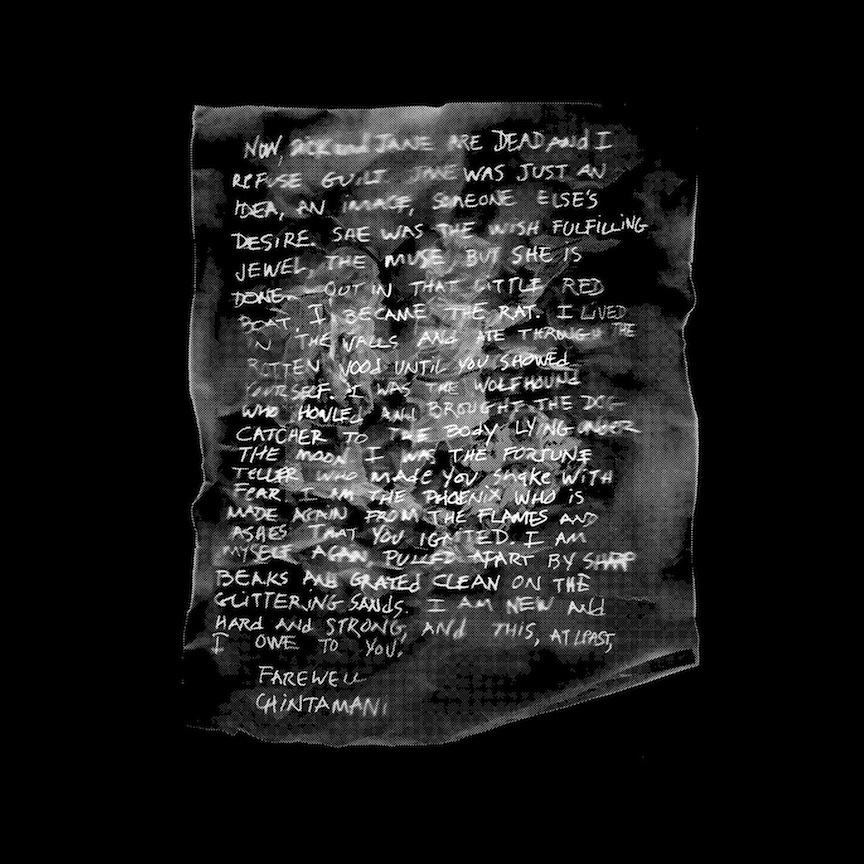 NOW, DICK and JANE ARE DEAD and I
REFUSE GUILT JANE WAS JUST AN
IDEA, AN IMAGE, SOMEONE ELSE'S
DESIRE. SHE WAS THE WISH FULFILLING
JEWEL, THE MUSE BUT SHE IS
DONE. OUT IN THAT LITTLE RED
BOAT, I BECAME THE RAT. I LIVED
IN THE WALLS AND ATE THROUGH THE
ROTTEN WOOd UNTIL YOU SHOWEd
YOURSELF. I WAS THE WOLFHOUNd
WHO HOWLEd ANd BROUGHT THE DOG
CATCHER TO THE BODY LYING UNDER
THE MOON I WAS THE FORTUNE
TELLER WHO MAdE YOU SHAKE WITH
FEAR. I AM THE PHOENIX WHO IS
MADE AGAIN FROM THE FLAMES AND
ASHES THAT YOU IGNITED. I AM
MYSELF AGAIN, PULLED APART BY SHARP
BEAKS AND GRATEd CLEAN ON THE
GLITTERING SANdS. I AM NEW ANd
HARd ANd STRONG, ANd THIS, AT LEAST,
I OWE TO YOU.
FAREWELL
CHINTAMANI